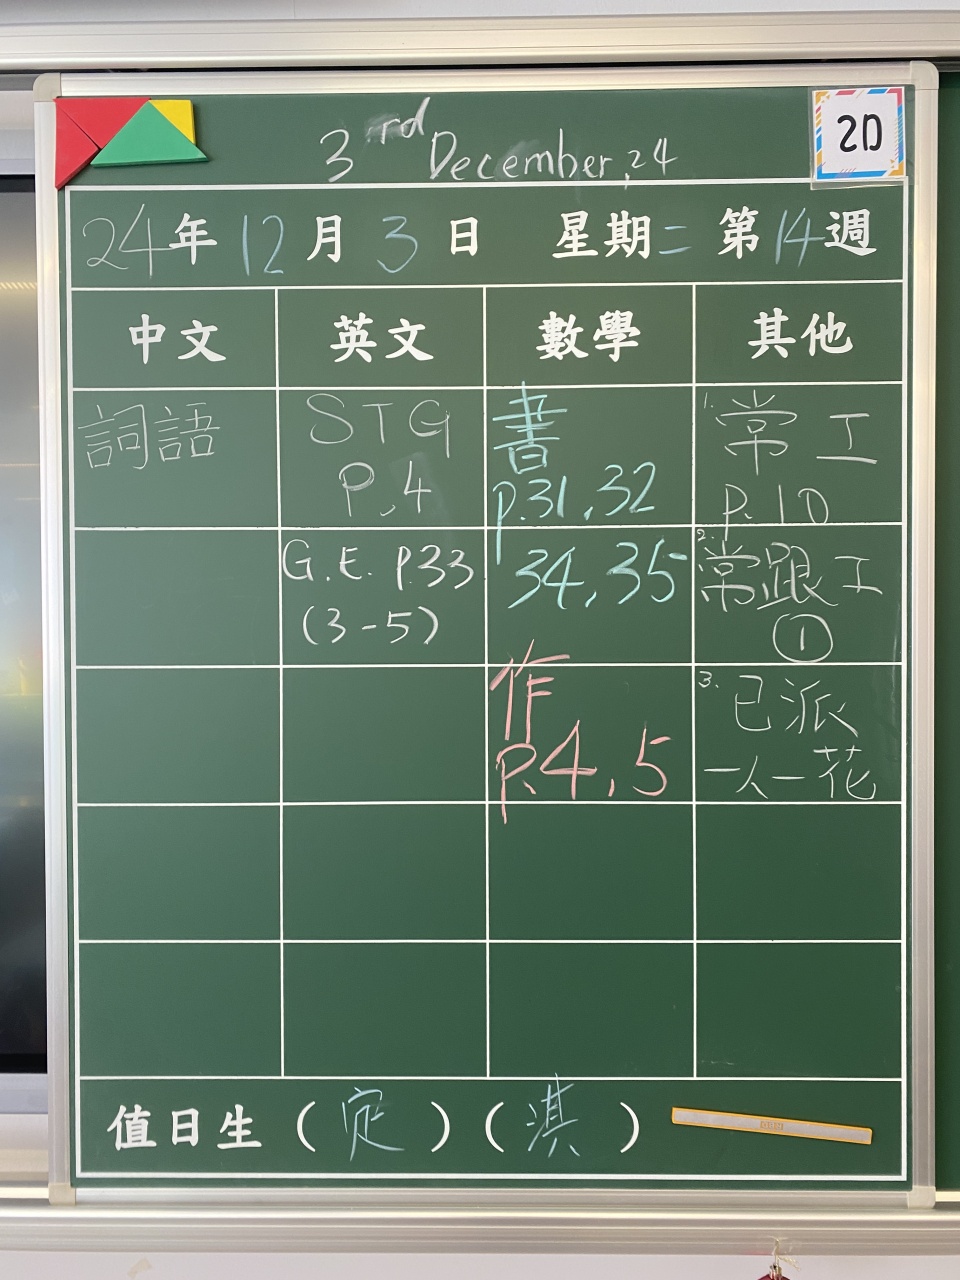 3rd December, 24
2D
24年 12月 3日 星期二 第14週
中文 英文 數學 其他
詞語
STG
P.4
G.E. P.33
(3-5)
書
p.31,32
34,35
作
P.4,5
1. 常工
P.10
2. 常跟工
①
3. 已派
一人一花
值日生(定)(淇)